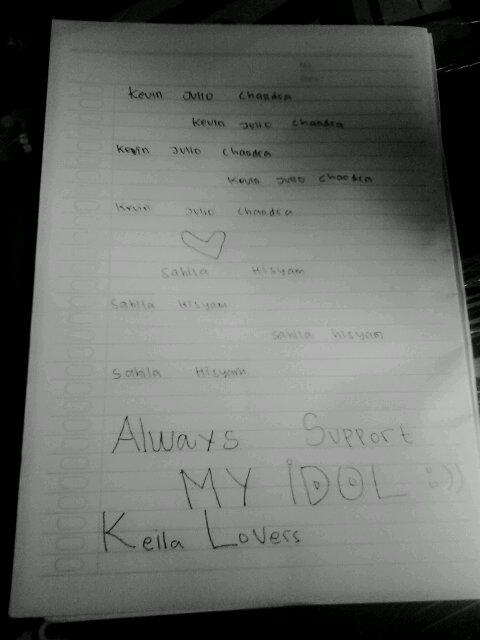 Kevin Julio Chandra
Kevin Julio Chandra
Kevin Julio Chandra
Kevin Julio Chandra
Kevin Julio Chandra
Sahila Hisyam
Sahila Hisyam
Sahila hisyam
Sahila Hisyam
Always Support
MY iDOL :))
Keila Lovers